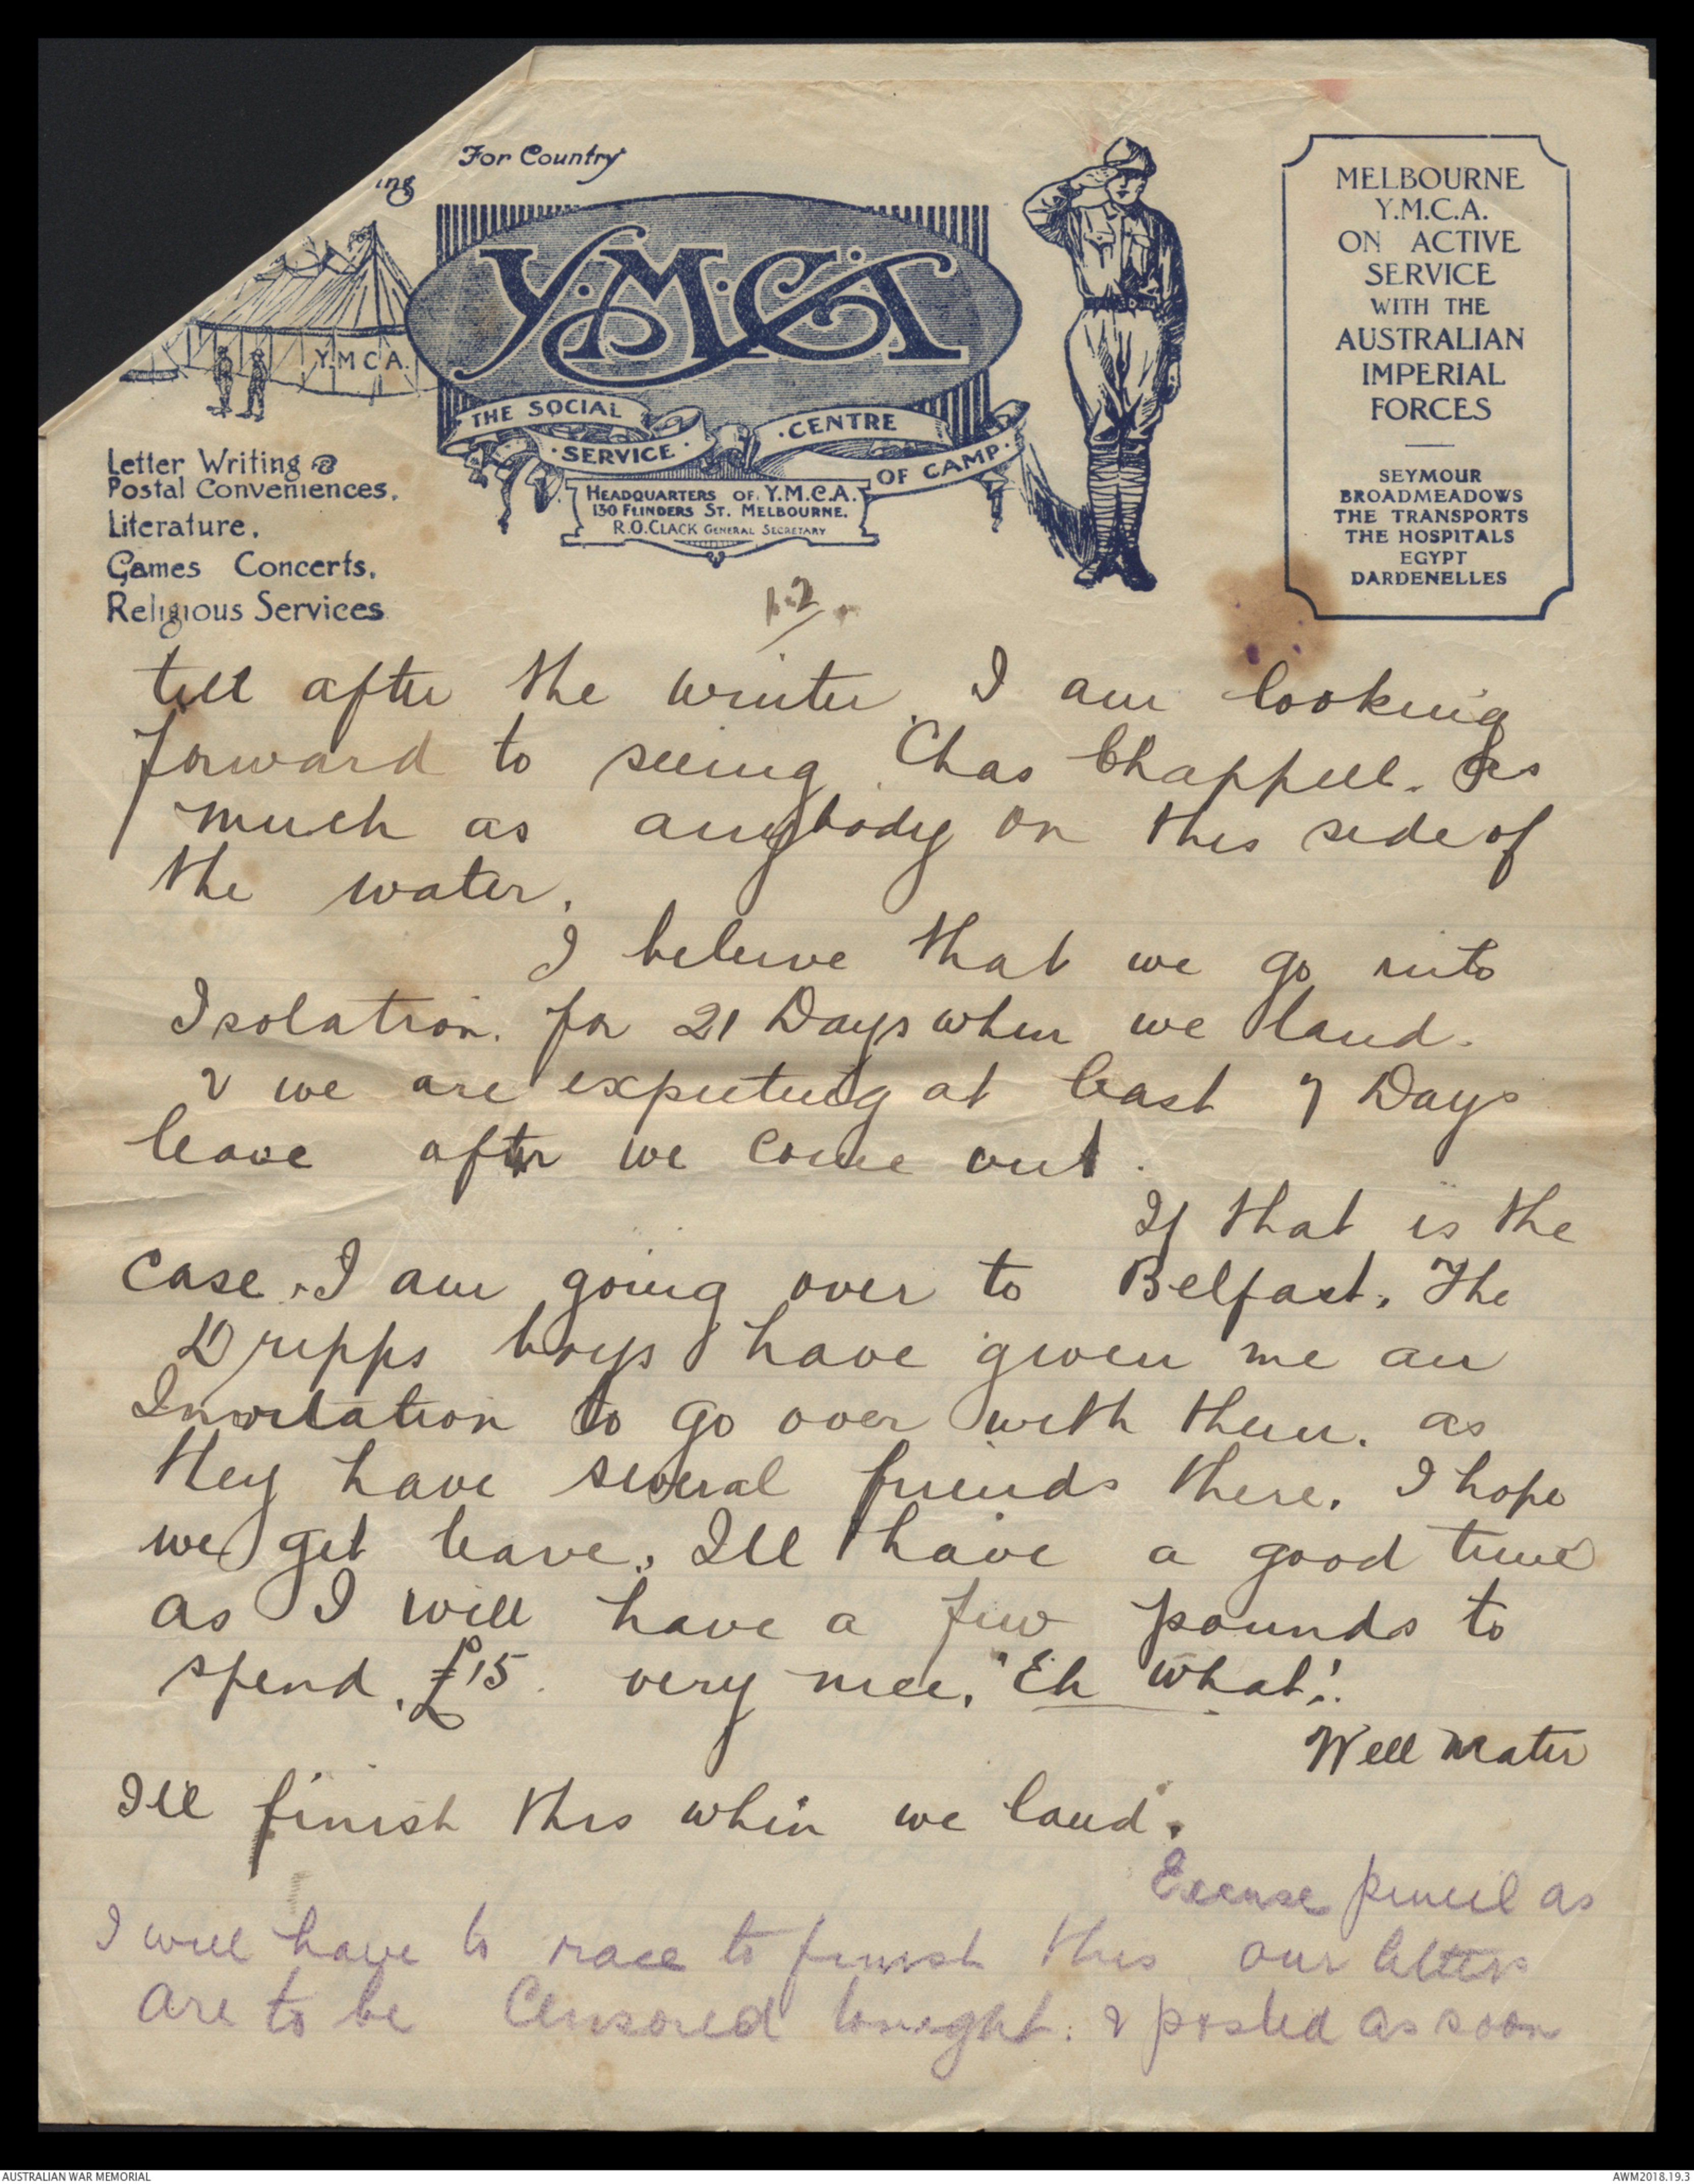 For Country
ing
Y.M.C.A.
Y.M.C.A.
THE SOCIAL
SERVICE
CENTRE
OF CAMP
HEADQUARTERS OF Y.M.C.A.
130 FLINDERS ST. MELBOURNE.
R.O. CLACK GENERAL SECRETARY
Letter Writing &
Postal Conveniences.
Literature.
Games Concerts.
Religious Services
MELBOURNE
Y.M.C.A.
ON ACTIVE
SERVICE
WITH THE
AUSTRALIAN
IMPERIAL
FORCES
SEYMOUR
BROADMEADOWS
THE TRANSPORTS
THE HOSPITALS
EGYPT
DARDENELLES
till after the winter. I am looking
forward to seeing Chas Chappell. As
much as anybody on this side of
the water.
I believe that we go into
Isolation. for 21 Days when we land.
& we are expecting at least 7 Days
leave after we come out.
If that is the
case. I am going over to Belfast. The
Dripps boys have given me an
Invitation to go over with them. as
they have several friends there. I hope
we get leave. Ill have a good time
as I will have a few pounds to
spend. £15. very nice. "Eh what"!
Well Mater
Ill finish this when we land.
Excuse pencil as
I will have to race to finish this our letters
are to be Censored tonight. & posted as soon
AUSTRALIAN WAR MEMORIAL
AWM2018.19.3